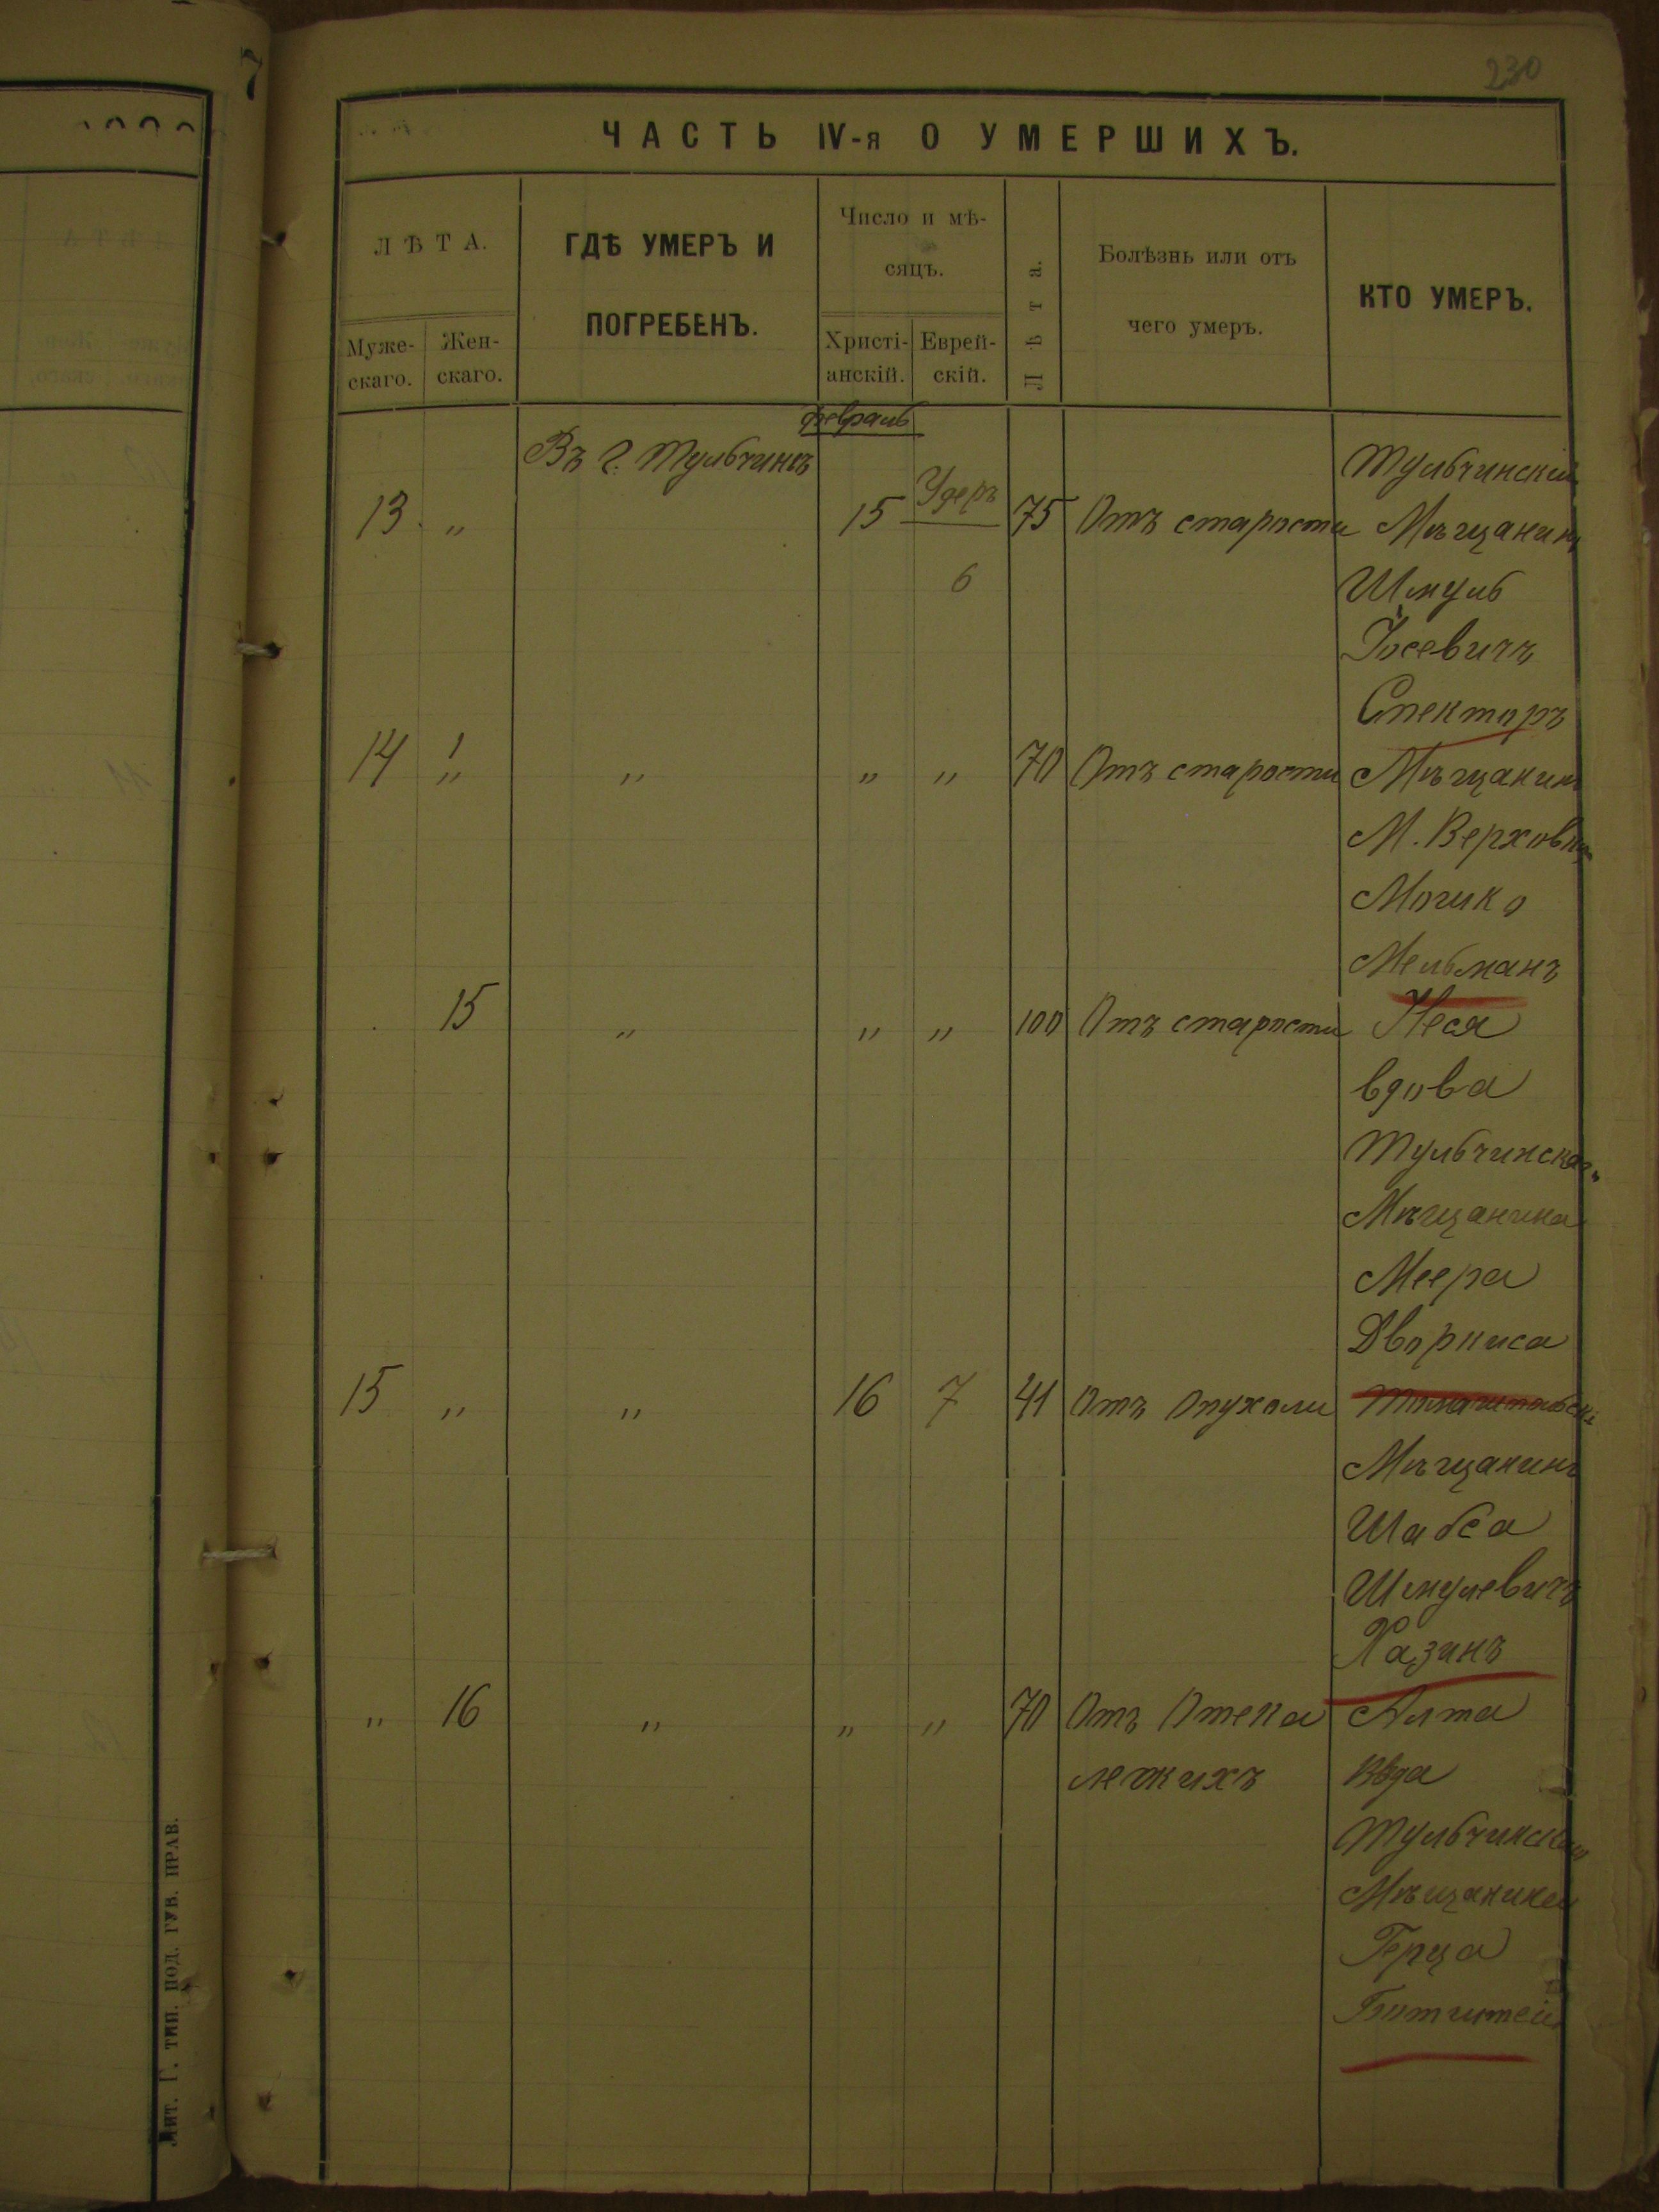 230
7
ЧАСТЬ IV-я О УМЕРШИХЪ.
ЛѢТА.
Муже-
скаго.
Жен-
скаго.
ГДѢ УМЕРЪ И
ПОГРЕБЕНЪ.
Число и мѣ-
сяцъ.
Христі-
анскій.
Еврей-
скій.
Лѣта.
Болѣзнь или отъ
чего умеръ.
КТО УМЕРЪ.
февраль
Въ г. Тульчинѣ
Тульчинскій
13 „ 15 Удеръ 75 Отъ старости Мѣщанинъ
6 Шмуль
Іосевичъ
Спекторъ
14 „ „ „ „ 70 Отъ старости Мѣщанинъ
М. Верховки
Мошко
Мельманъ
15 „ „ „ 100 Отъ старости Неся
вдова
Тульчинскаго
Мѣщанина
Меера
Дворкиса
15 „ „ 16 7 41 Отъ Опухоли
Мѣщанинъ
Шабса
Шмулевичъ
Хазинъ
„ 16 „ „ „ 70 Отъ Отека Алта
лежихъ Вда
Тульчинскаго
Мѣщанина
Герца
Лит. Г. тип. под. губ. прав.